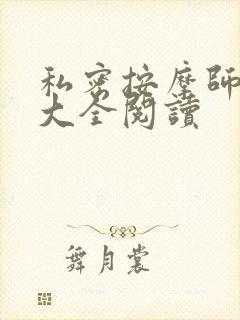 私密按摩師
大全閱讀
舞月裳